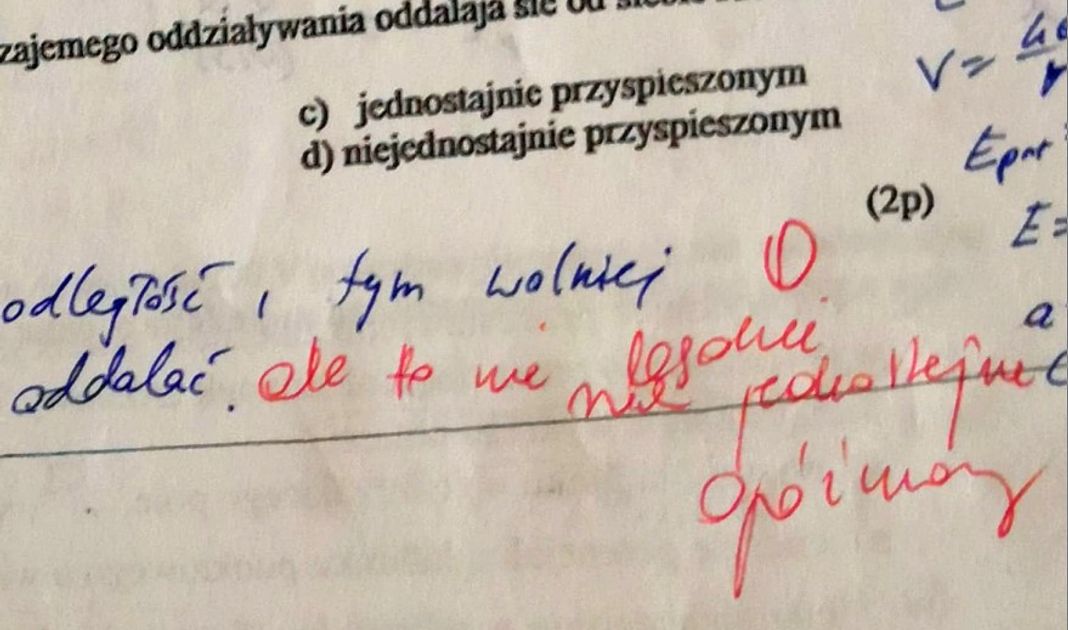 zajemego oddziaływania oddalają się od siebie
c) jednostajnie przyspieszonym
d) niejednostajnie przyspieszonym
(2p)
V=
E
E=
a
odległość, tym wolniej
oddalać. ale to nie
nie jednostajnie
opóźniony